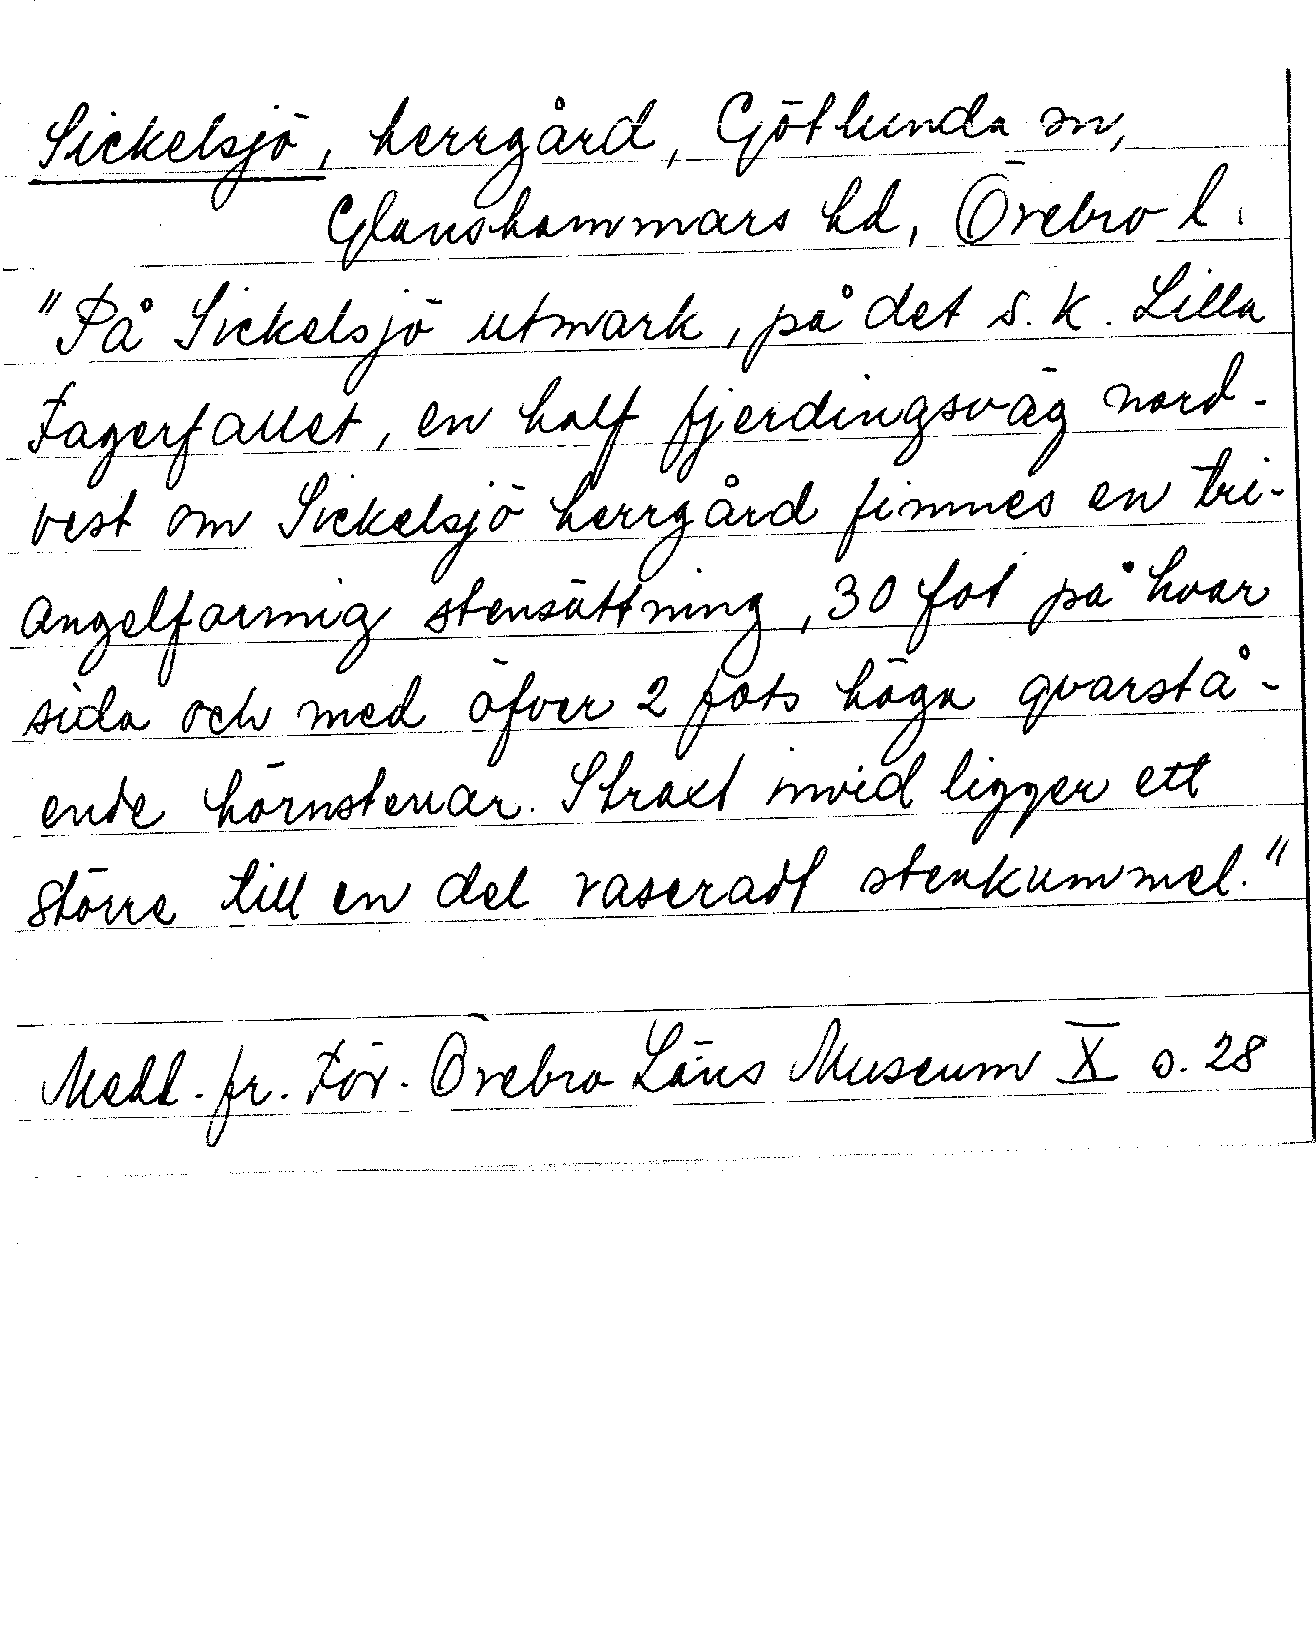 Sickelsjö, herrgård, Götlunda sn,
Glanshammars hd, Örebro l.
"På Sickelsjö utmark, på det s.k. Lilla
Fagerfallet, en half fjerdingsväg nord-
vest om Sickelsjö herrgård finnes en tri-
angelformig stensättning, 30 fot på hvar
sida och med öfver 2 fots höga qvarstå-
ende hörnstenar. Straxt invid ligger ett
större till en del raseradt stenkummel."
Medd. fr. För. Örebro Läns Museum X s. 28